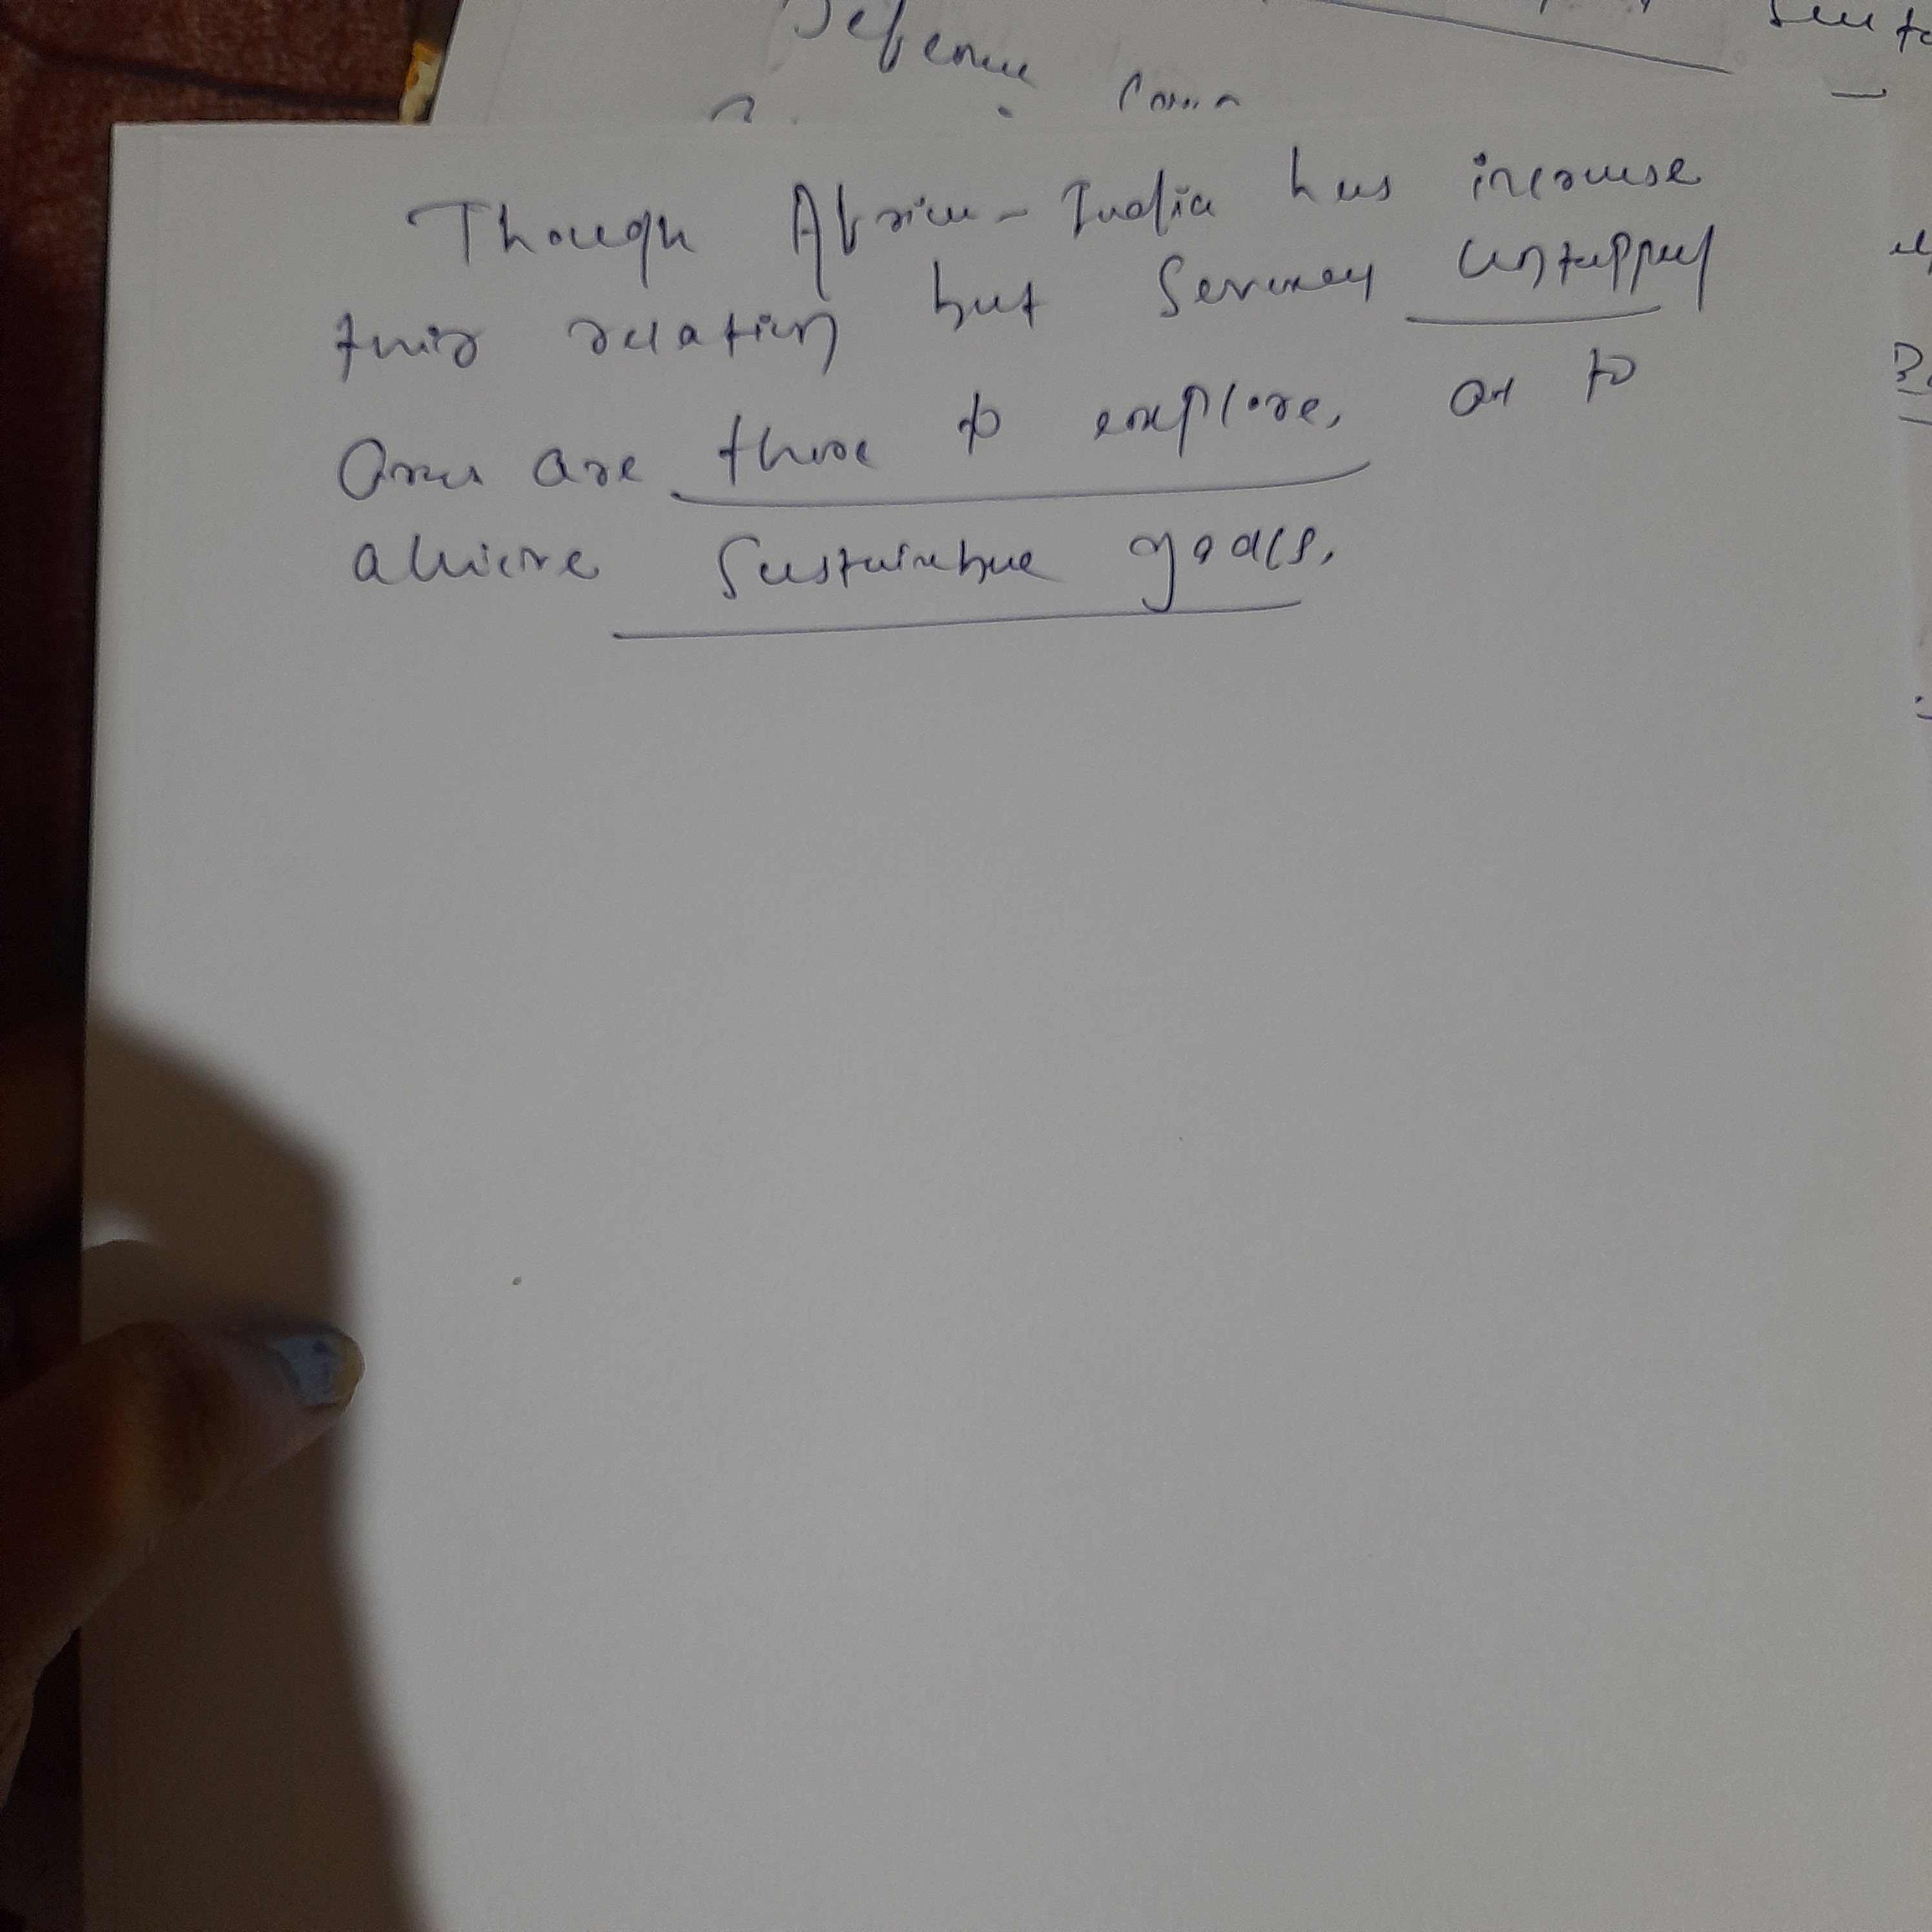 Defence
Though Africa - India has increase
their relation but several untapped
areas are there to explore, as to
achieve sustainable goals.